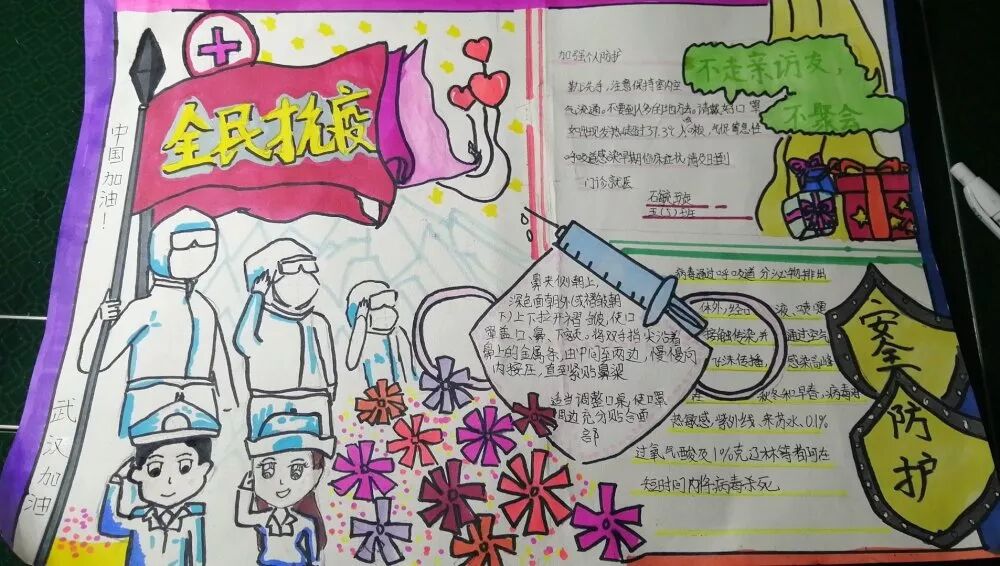 全民抗疫
中国加油！
武汉加油
加强个人防护
勤洗手，注意保持室内空
气流通。不要到人多的地方去。请戴好口罩
如出现发热
呼吸道感染早期临床症状 请及时到
门诊就医
五(5)班
不走亲访友，
不聚会
鼻夹侧朝上，
深色面朝外(或褶皱朝
下)上下拉开褶皱，使口
罩盖口、鼻、下颌。将双手指尖沿着
鼻上的金属条，由中间至两边，慢慢向
内按压，直到紧贴鼻梁
适当调整口罩，使口罩
周边充分贴合面
部
病毒通过呼吸道分泌物排出
体外，经口 液、喷嚏
接触传染，并 通过空气
飞沫传播， 感染高峰
秋冬和早春，病毒对
热敏感，紫外线、来苏水、0.1%
过氧 酸及1%克辽林等都可在
短时间内将病毒杀死
安全
防护